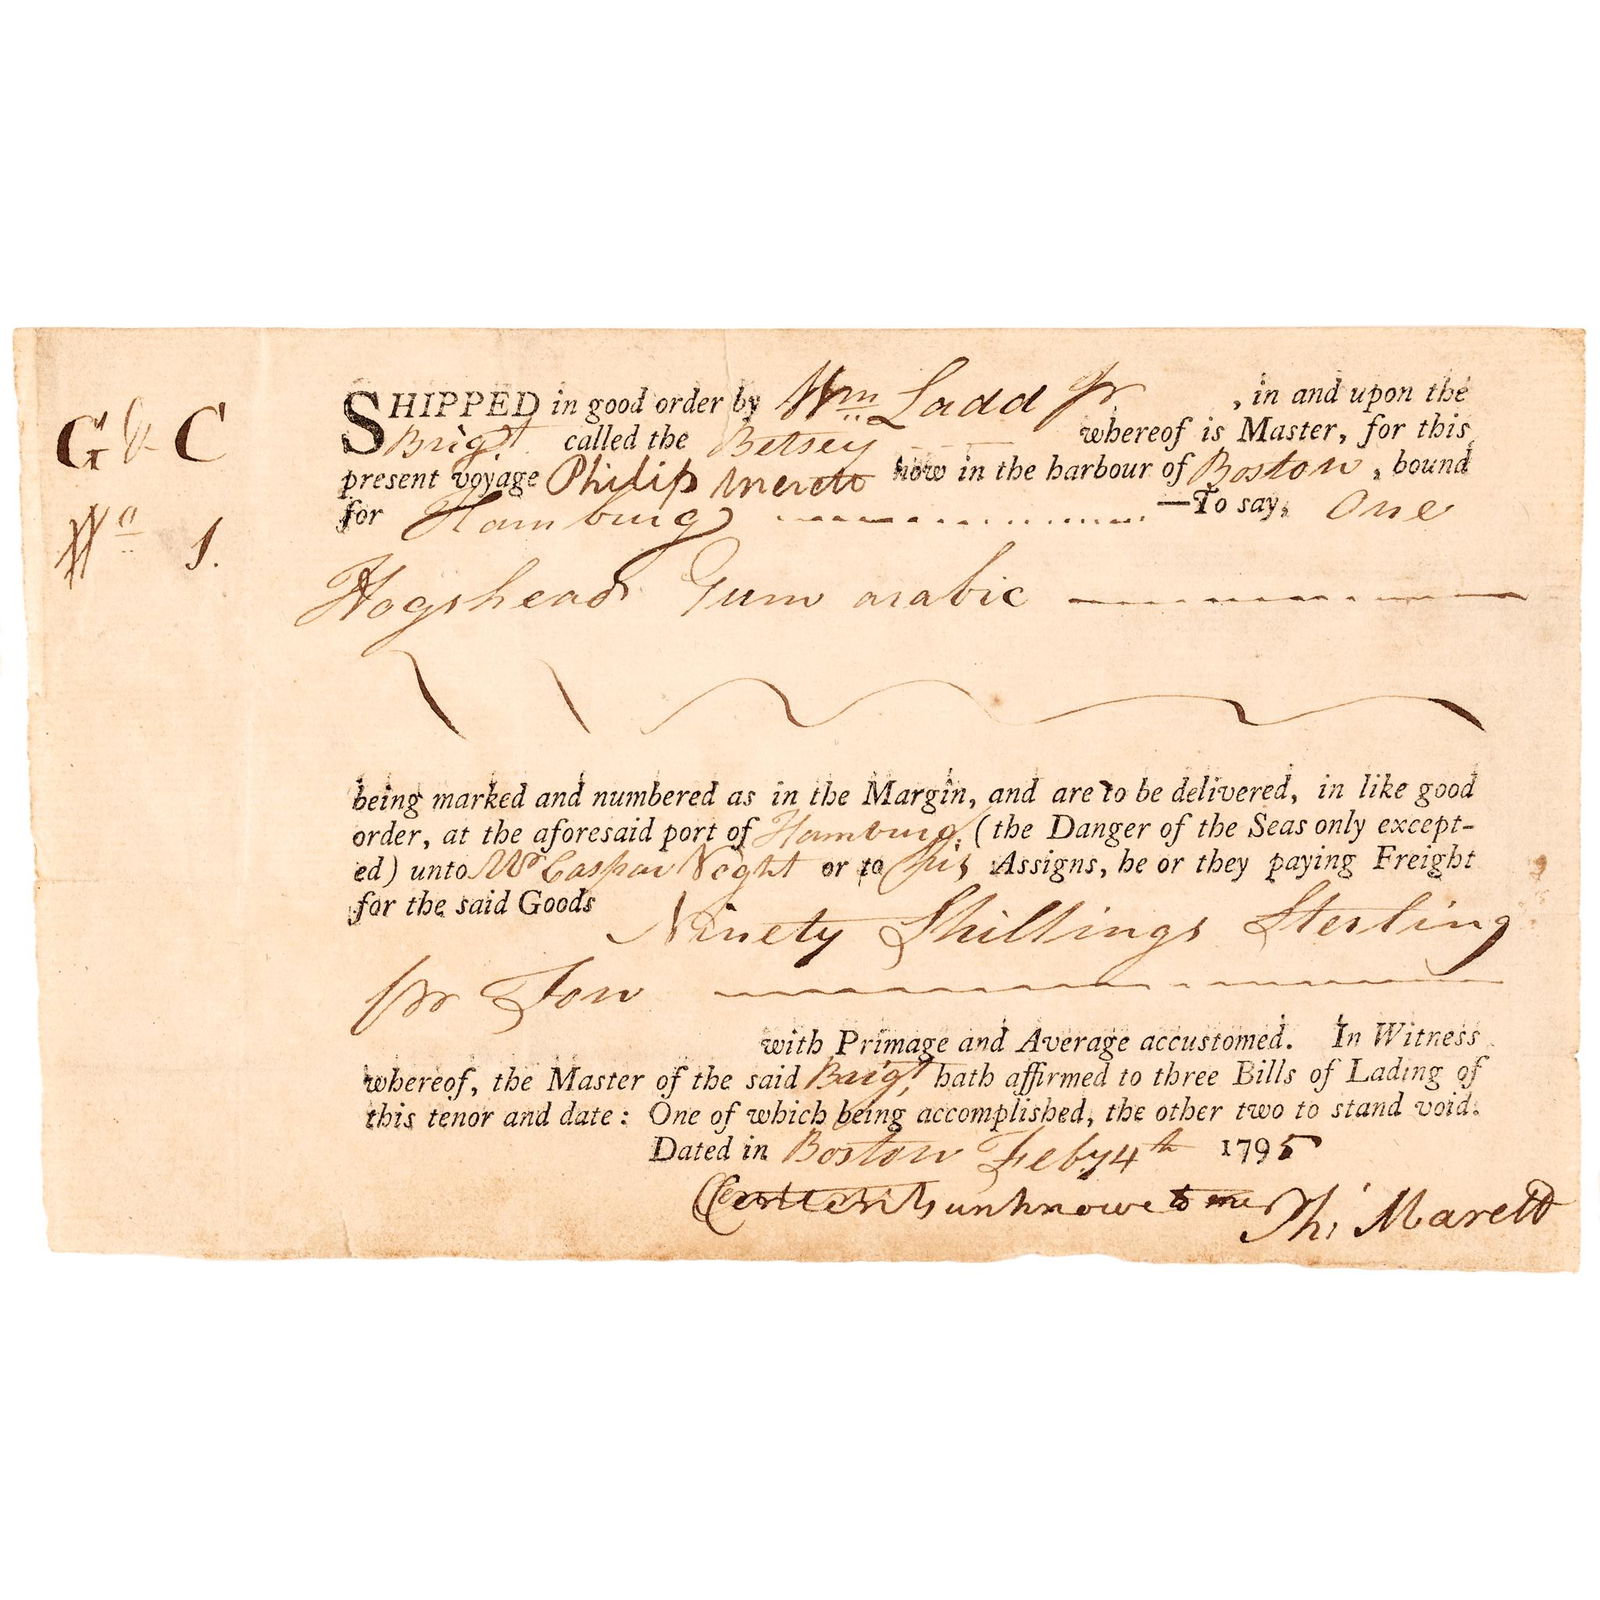 G & C
No 1.
SHIPPED in good order by Wm Ladd Jr , in and upon the
Brigt called the Betsey whereof is Master, for this
present voyage Philip Merett now in the harbour of Boston , bound
for Hamburg —To say, One
Hogshead Gum arabic
being marked and numbered as in the Margin, and are to be delivered, in like good
order, at the aforesaid port of Hamburg, (the Danger of the Seas only except-
ed) unto Mr Caspar Voght or to his Assigns, he or they paying Freight
for the said Goods Ninety Shillings Sterling
pr Ton
with Primage and Average accustomed. In Witness
whereof, the Master of the said Brigt hath affirmed to three Bills of Lading of
this tenor and date: One of which being accomplished, the other two to stand void.
Dated in Boston Feby 4th 1795
Contents unknowe to me Phi Marett